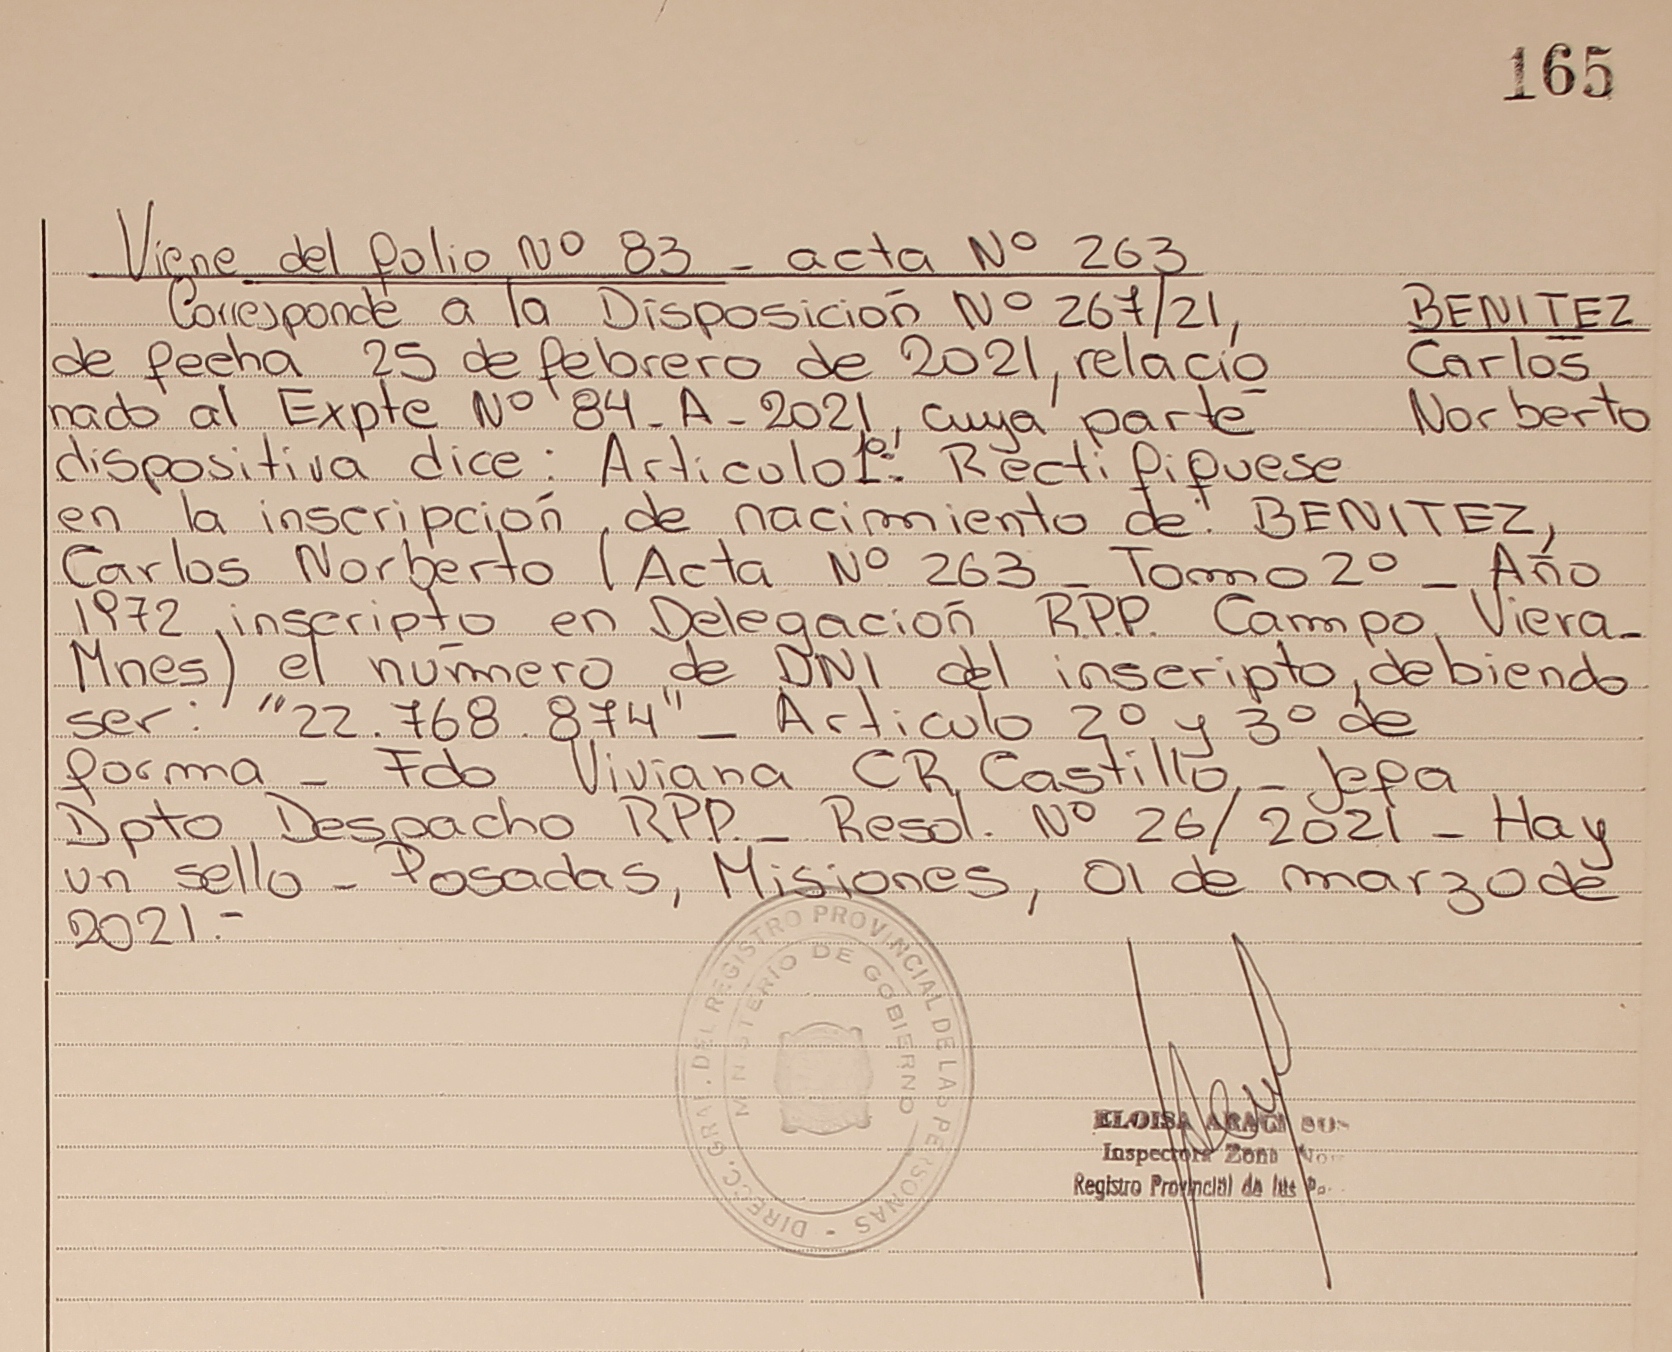 165
Viene del folio Nº 83 - acta Nº 263
Corresponde a la Disposición Nº 267/21,
de fecha 25 de febrero de 2021, relacio
nado al Expte Nº 84-A-2021, cuya parte
dispositiva dice: Articulo 1º: Rectifiquese
en la inscripción de nacimiento de: BENITEZ,
Carlos Norberto (Acta Nº 263 - Tomo 2º - Año
1972, inscripto en Delegación R.P.P. Campo Viera-
Mnes) el número de DNI del inscripto, debiendo
ser: "22.768.874" - Articulo 2º y 3º de
forma - Fdo Viviana CR Castillo, - Jefa
Dpto Despacho RPP. - Resol. Nº 26/2021 - Hay
un sello - Posadas, Misiones, 01 de marzo de
2021.-
BENITEZ
Carlos
Norberto
DIRECC. GRAL. DEL REGISTRO PROVINCIAL DE LAS PERSONAS -
MINISTERIO DE GOBIERNO
ELOISA
Inspectora Zona
Registro Provincial de las